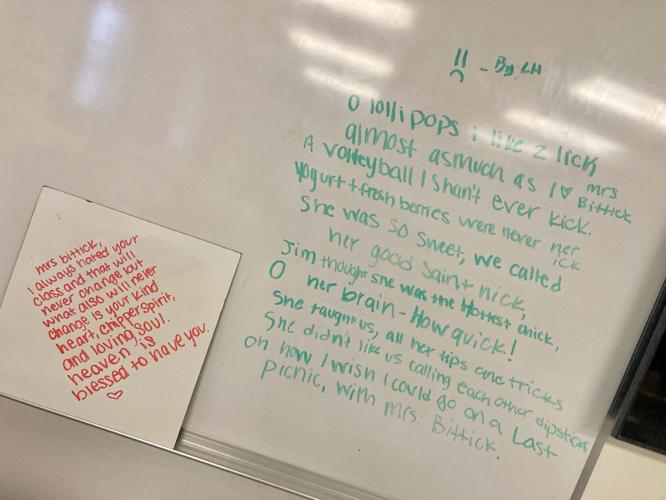 mrs bittick,
I always hated your
class and that will
never change but
what also will never
change is your kind
heart, chipper spirit,
and loving soul.
heaven is
blessed to have you.
- By: LH
O lollipops i like 2 lick
almost as much as I ♥ mrs Bittick
A volleyball I shan't ever kick.
yogurt + fresh berries were never her ick.
She was so sweet, we called
her good saint nick,
Jim thought she was the Hottest chick,
O her brain - How quick!
She taught us, all her tips and tricks
She didn't like us calling each other dipsticks
oh how I wish I could go on a Last
picnic, with Mrs. Bittick.